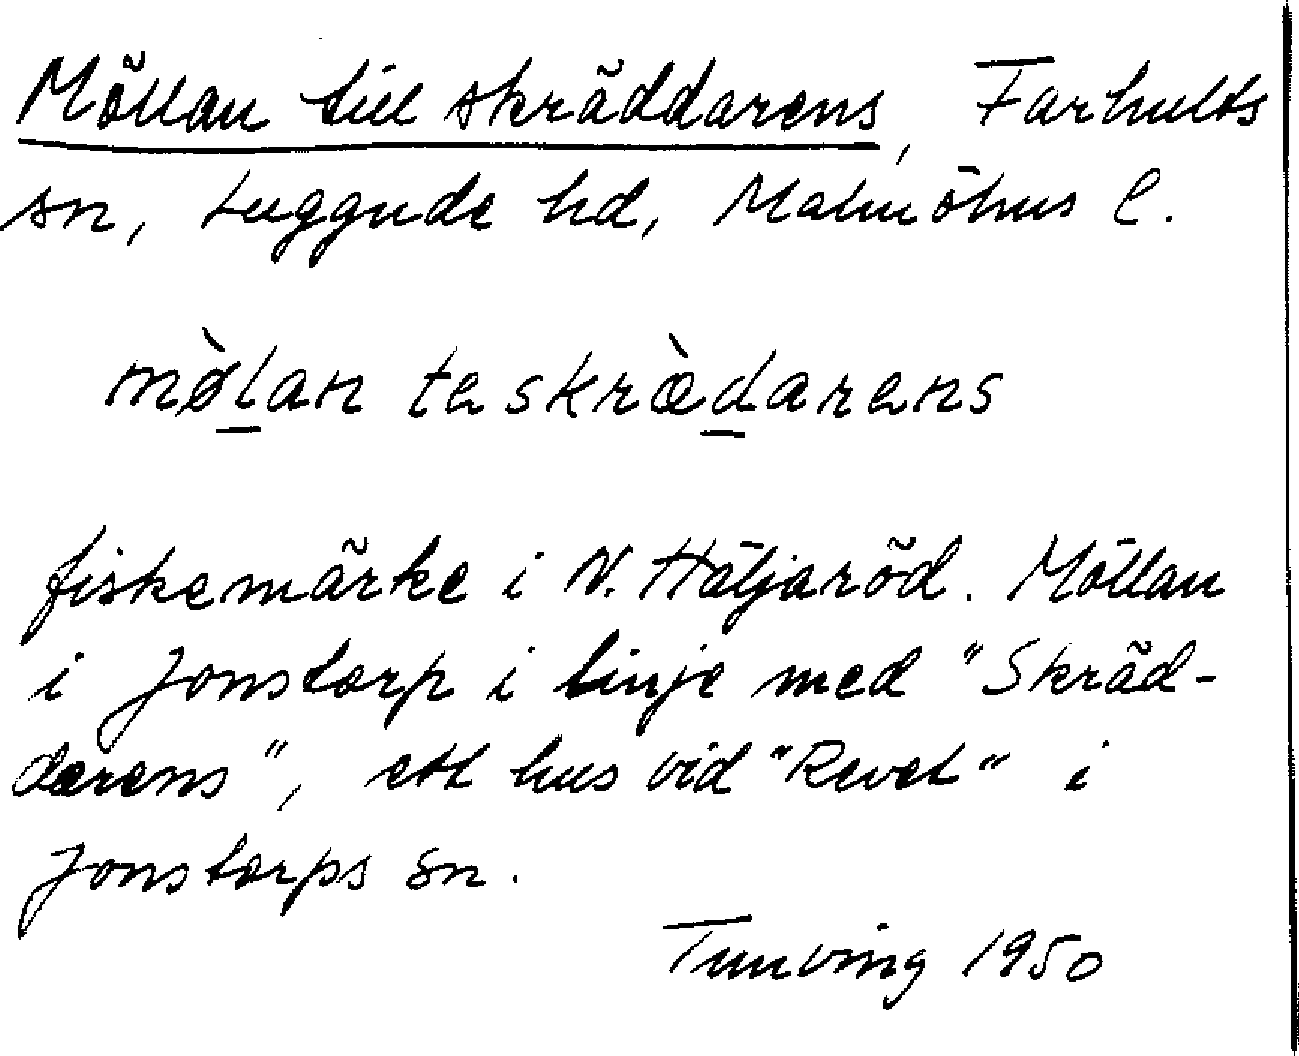 Möllan till skräddarens, Farhults
sn, Luggude hd, Malmöhus l.
mø̀lan te skræ̀darens
fiskemärke i N. Häljaröd. Möllan
i Jonstorp i linje med "Skräd-
darens", ett hus vid "Revet" i
Jonstorps sn.
Tunving 1950